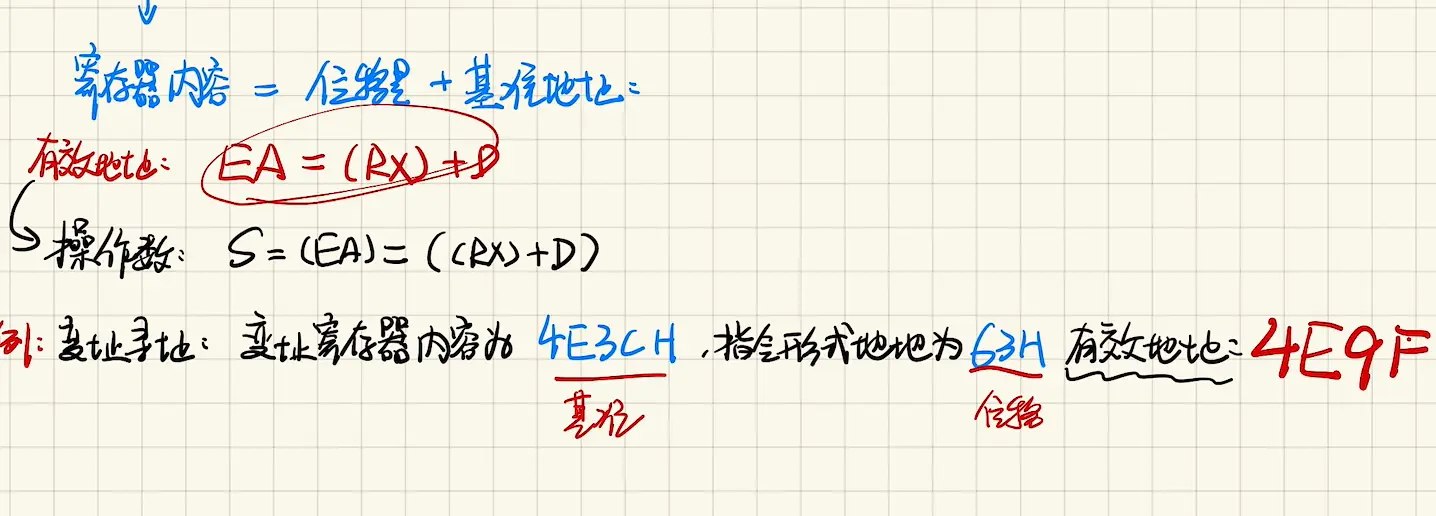 寄存器内容 = 位移量 + 基准地址:
有效地址: EA = (RX) + D
操作数: S = (EA) = ((RX)+D)
例: 变址寻址: 变址寄存器内容为 4E3CH ,指令形式地地为 63H 有效地址: 4E9F
基准 位移